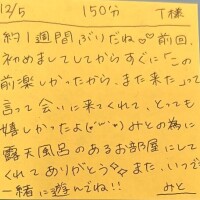 12/5 150分 T様
約1週間ぶりだね♡♡前回、
初めましてしてからすぐに「この
前楽しかったから、また来た」って
言って会いに来てくれて、とっても
嬉しかったよ(*´꒳`*)みとの為に
露天風呂のあるお部屋にして
くれてありがとう✧✧また、いつでも
一緒に遊んでね!!
みと